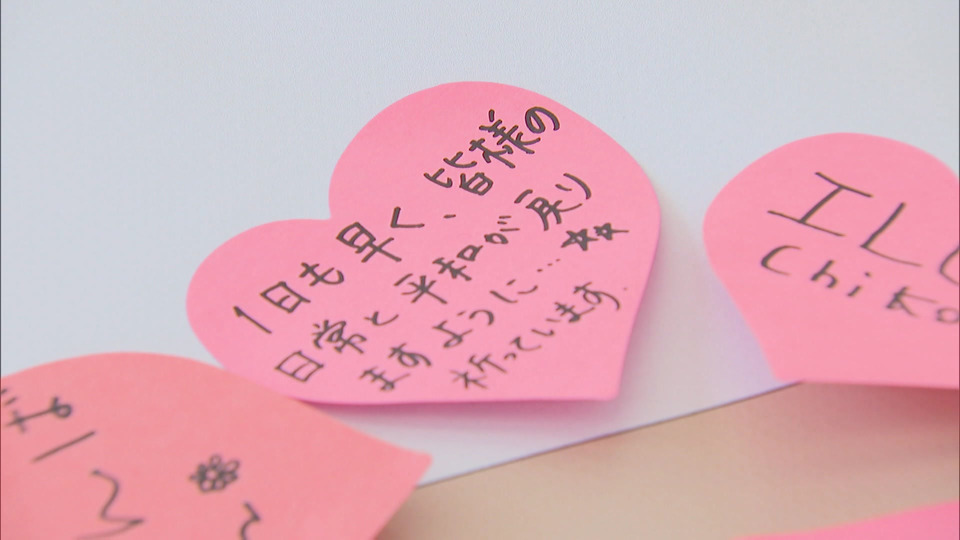 1日も早く、皆様の
日常と平和が戻り
ますように…☆☆
祈っています.
IL
Chiko